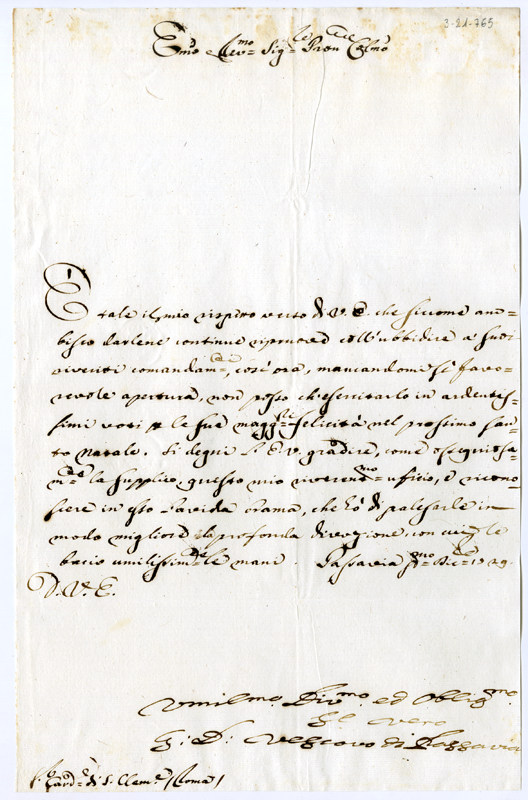 3-21-765
Emo e Revmo Sigre Pron Colmo
È tale il mio rispetto verso di V. E. che siccome am=
bisco darlene continue riprove coll'ubbidire a suoi
riveriti comandamti, così ora, mancandomi sì favo=
revole apertura, non posso ch'esercitarlo in ardentis=
simi voti le sue maggri felicità nel prossimo san=
to Natale. Si degni l'E. V. gradire, come ossequiosa=
mte la supplico, questo mio riverentmo ufficio, e ricono=
scere in esso l'avida brama, che hò di palesarle in
modo migliore la profonda divozione, con cui le
bacio umilissimte le mani. Passavia pmo Dice 1729.
D. V. E.
Umilmo Divmo ed Obligmo
Sr vero
G: D: Vescovo di Passavia
Card. di S. Clemte (Roma)